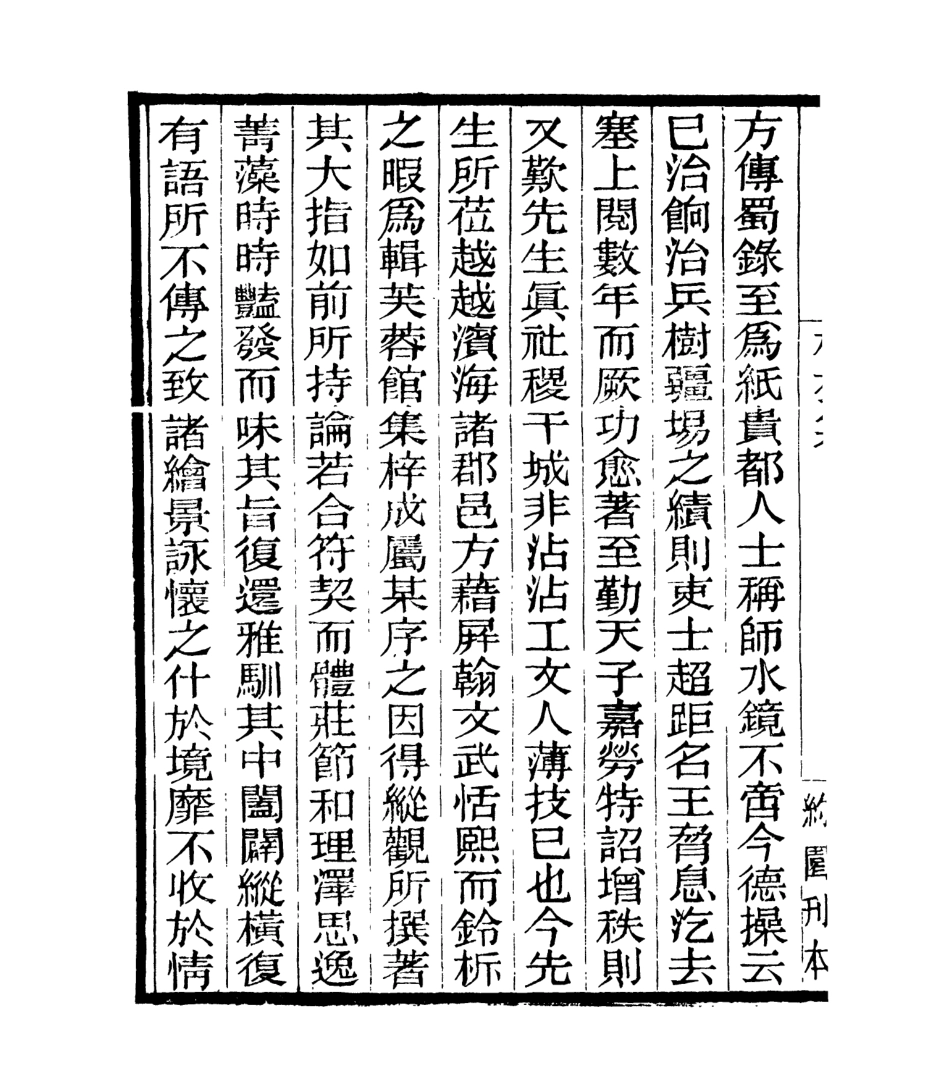 方傳蜀錄至爲紙貴都人士稱師水鏡不啻今德操云
已治餉治兵樹疆場之績則吏士超距名王脅息汔去
塞上閱數年而厥功愈著至勤天子嘉勞特詔增秩則
又歎先生眞社稷干城非沾沾工文人薄技已也今先
生所莅越越濱海諸郡邑方藉屛翰文武恬熙而鈴柝
之暇爲輯芙蓉館集梓成屬某序之因得縱觀所撰著
其大指如前所持論若合符契而體莊節和理澤思逸
菁藻時時豔發而味其旨復還雅馴其中闔闢縱橫復
有語所不傳之致諸繪景詠懷之什於境靡不收於情
約園刊本